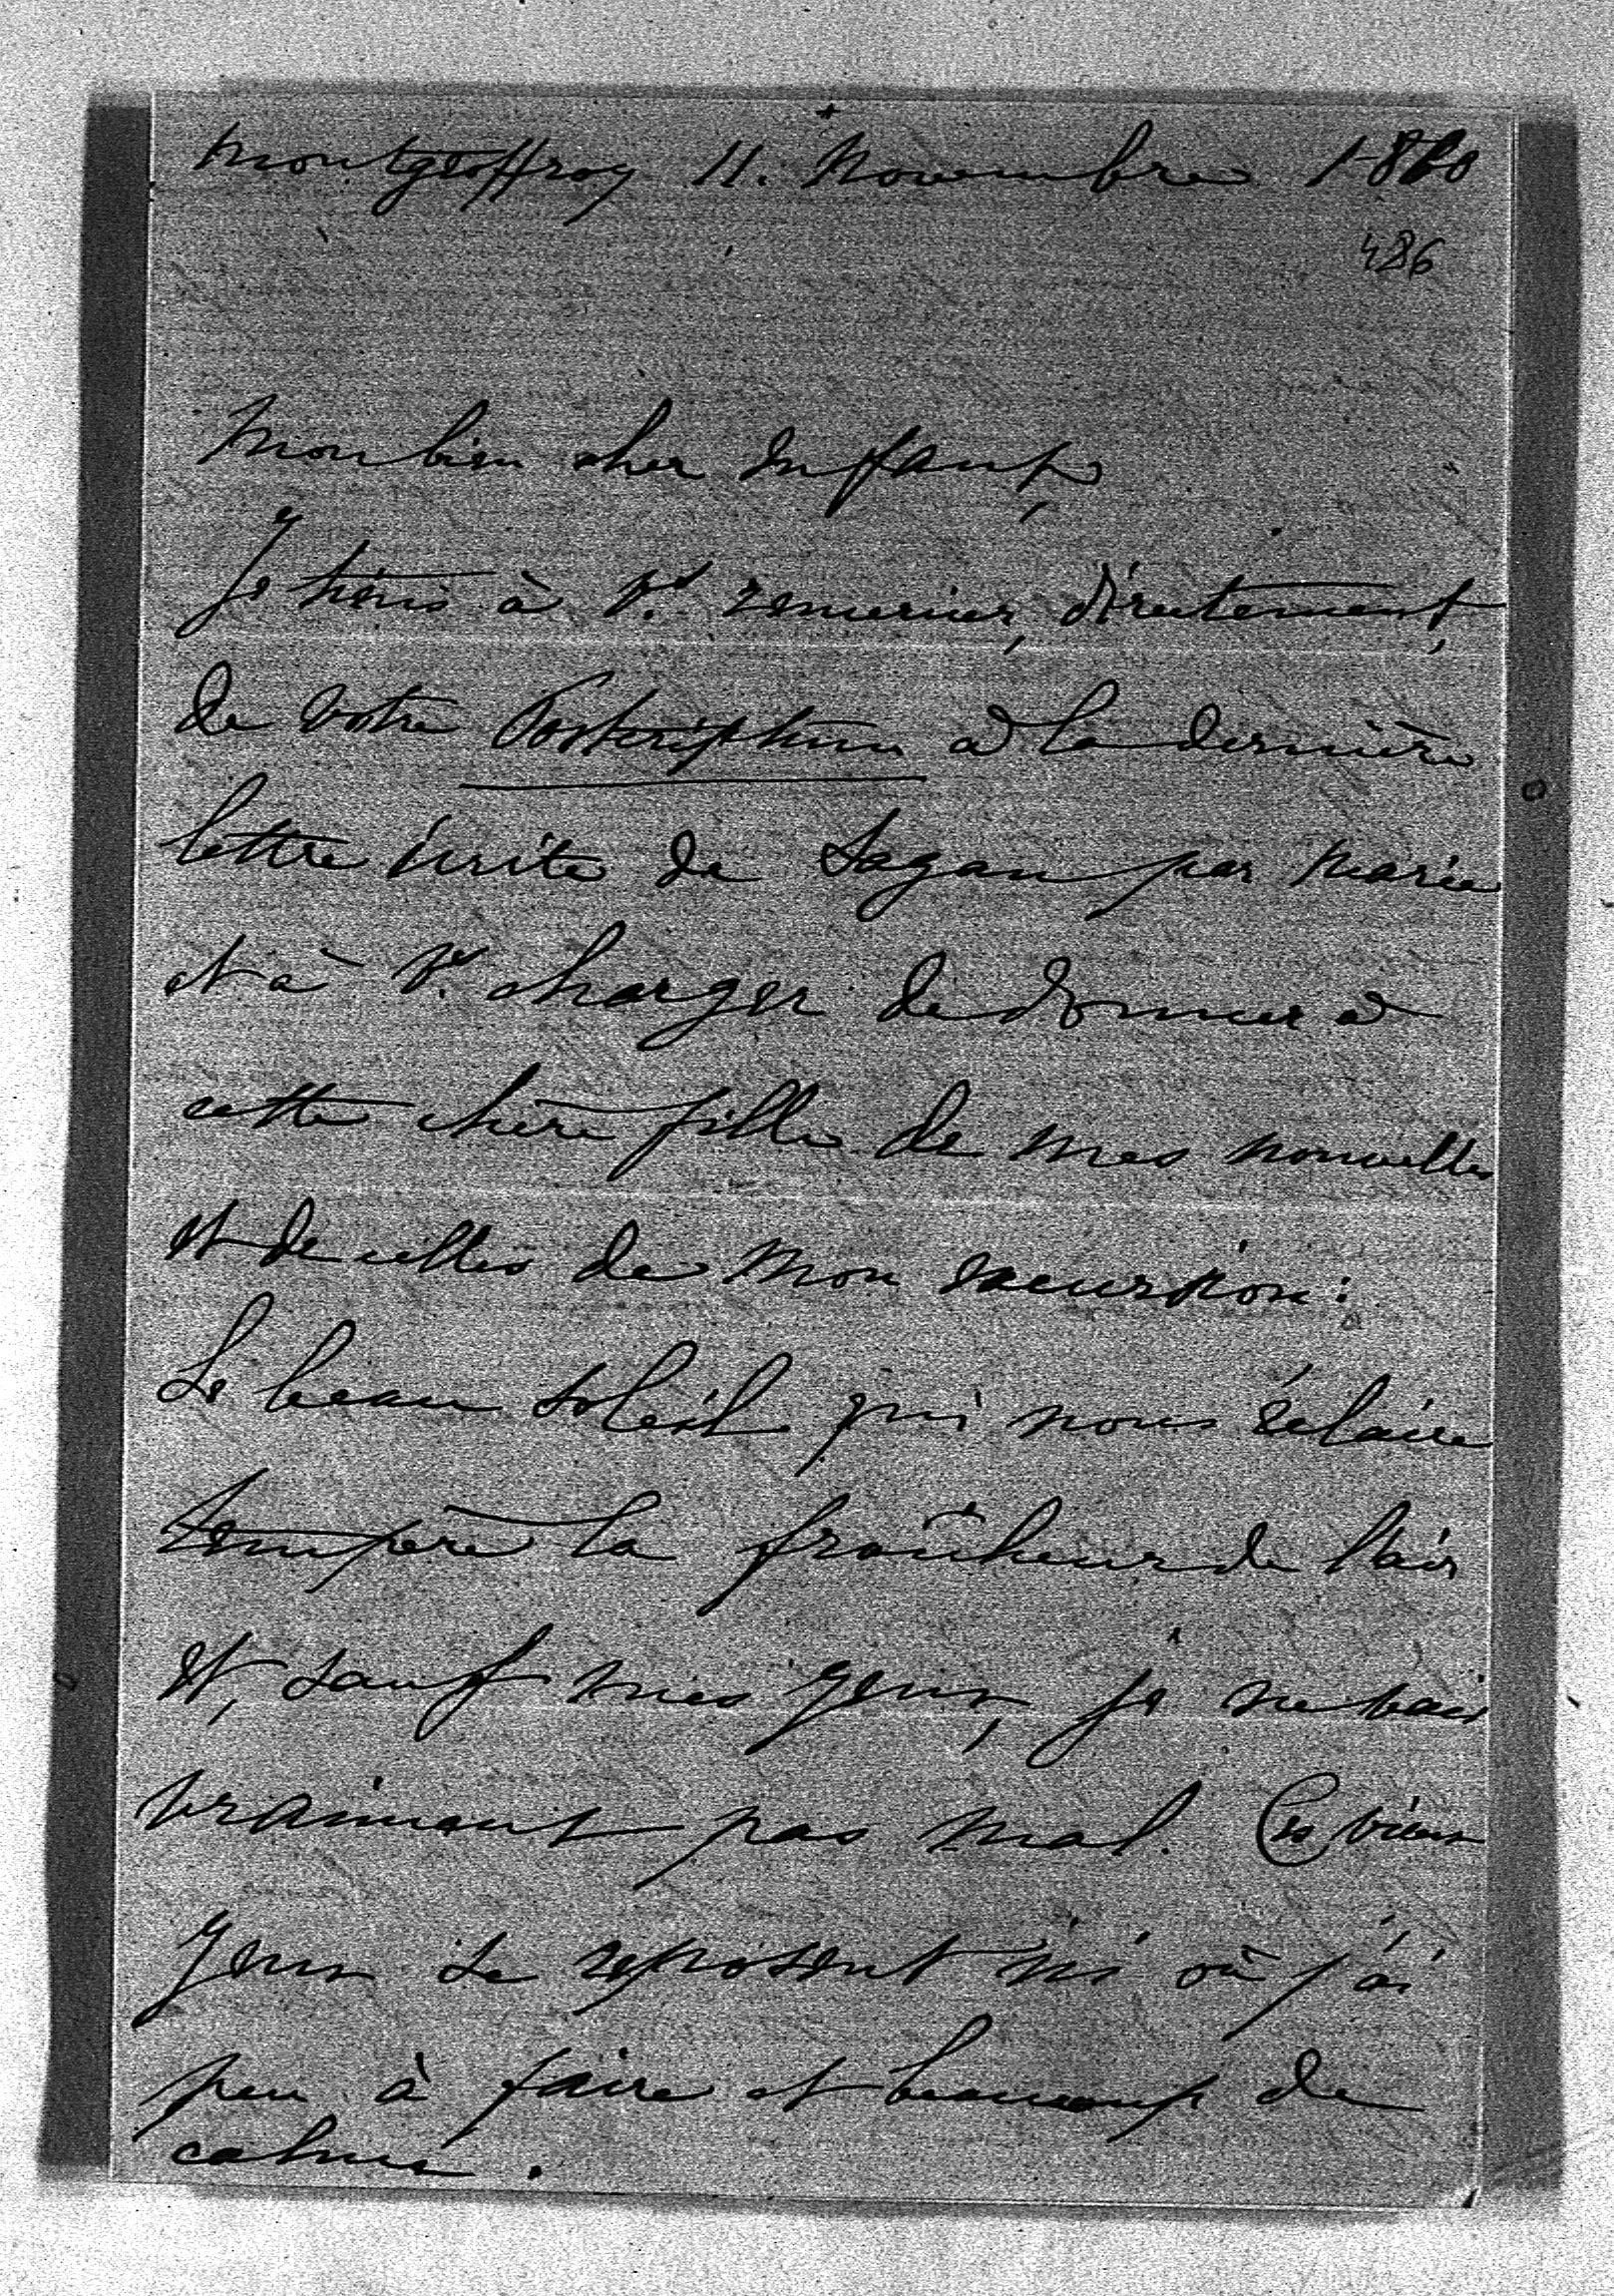 Montgeoffroy 11. Novembre 1880
486
Mon bien cher Enfant,
Je tiens à Vs remercier, directement,
de votre Postcriptum à la dernière
lettre écrite de Sagan par Marie
et à Vs charger de donner à
cette chère fille de mes nouvelles
et de celles de mon excursion:
Le beau soleil qui nous éclaire
tempère la fraîcheur de l'air
et, sauf mes yeux, je ne vais
vraiment pas mal. Ces vieux
yeux se reposent ici où j'ai
peu à faire et beaucoup de
calme.